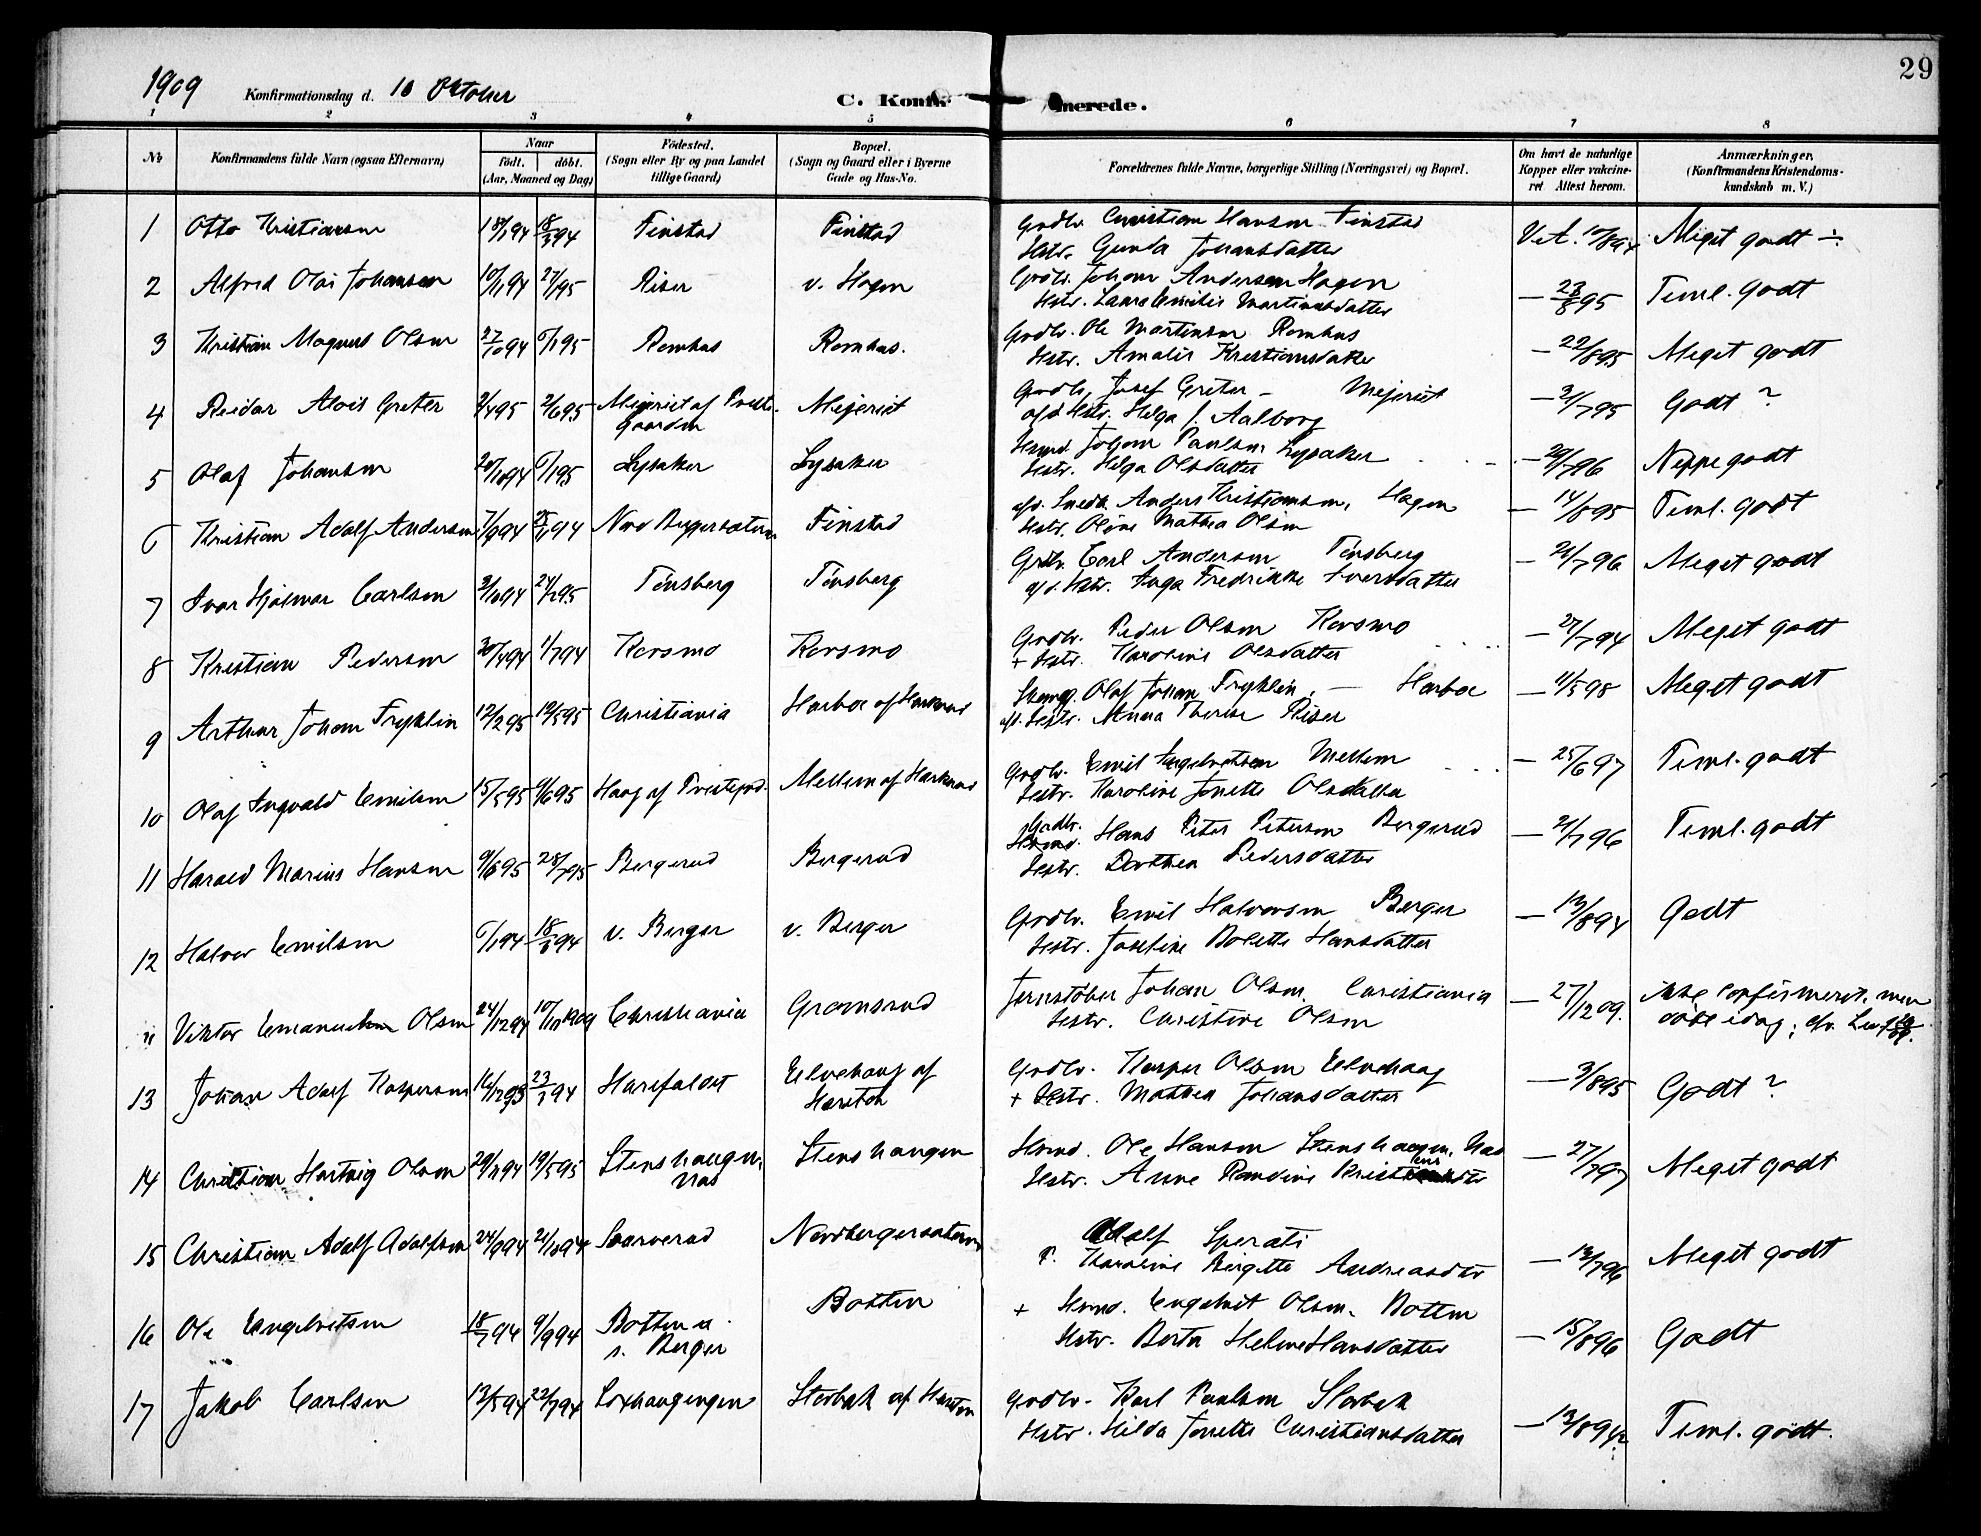 29
1909 Konfirmationsdag d. 10 Oktober
C. Konfir merede.
1 2 3 4 5 6 7 8
No Konfirmandens fulde Navn (ogsaa Efternavn)
Naar
født. døbt.
(Aar, Maaned og Dag)
Fødested.
(Sogn eller By og paa Landet
tillige Gaard)
Bopæl.
(Sogn og Gaard eller i Byerne
Gade og Hus-No.
Forældrenes fulde Navne, borgerlige Stilling (Næringsvei) og Bopæl.
Om havt de naturlige
Kopper eller vakcine-
ret Attest herom.
Anmærkninger.
(Konfirmandens Kristendoms-
kundskab m. V.)
1 Otto Kristiansen 18/1 94 18/3 94 Finstad Finstad Grdbr. Christian Hansen Finstad V.A. Meget godt ÷
Hstr. Gunda Johansdatter
2 Alfred Olai Johansen 27/1 95 Riser v. Hagen Grdbr. Johan Andersen Hagen — 23/8 95 Teml. godt
Hstr. Laura Emilie Martinusdatter
3 Kristian Magnus Olsen 27/10 94 6/1 95 Romhus Romhus. Grdbr. Ole Martinsen Romhus — 22/8 95 Meget godt
Hstr. Amalie Kristiansdatter
4 Reidar Alois Greter 2/4 95 2/6 95 Meieriet af Preste- Mejeriet Grdbr. Josef Greter — Mejeriet — 2/7 95 Godt ?
gaarden Hstr. Helga f. Aalborg
5 Olaf Johansen 20/10 94 6/1 95 Lysaker Lysaker Hsmd Johan Paulsen Lysaker Neppe godt
Hstr. Helga Olsdatter
6 Kristian Adolf Andersen 7/9 94 Finstad Snedk. Anders Kristiansen, Hagen — 14/8 95 Teml. godt
Hstr. Oline Mathea Olsen
7 Ivar Hjalmar Carlsen 3/10 94 24/2 95 Tønsberg Tønsberg Grdbr. Carl Andersen Tønsberg Meget godt
Hstr. Inga Fredrikke Iversdatter
8 Kristian Pedersen 30/4 94 1/7 94 Korsmo Korsmo Grdbr. Peder Olsen Korsmo — 27/7 94 Meget godt
+ Hstr. Karoline Olsdatter
9 Arthur Johan Fryklin 12/2 95 19/5 95 Christiania Harboe af Harknæs Olof Johan Fryklin. — Harboe Meget godt
Hstr. Anna Therese Riser
10 Olaf Ingvald Emilsen 15/5 95 9/6 95 Haag af Prestegrd. Mellem af Harknæs Grdbr. Emil Engebretsen Mellem — 25/6 97 Teml. godt
Hstr. Karoline Jonette Olsdatter
11 Harald Marius Hansen 9/6 95 28/7 95 Bergerud Bergerud Grdbr. Hans Peter Petersen Bergerud — 21/7 96 Teml. godt
Hstr. Dorthea Pedersdatter
12 Halvor Emilsen 6/1 94 18/3 94 v. Berger v. Berger Grdbr. Emil Halvorsen Berger — 13/8 94 Godt
Hstr. Josefine Bolette Hansdatter
" Viktor Emanuel Olsen 24/12 94 10/10 1909 Christiania Gramsrud Jernstøber Johan Olsen. Christiania — 27/12 09. ikke confirmeret, men
Hstr. Christine Olsen døbt idag;
13 Johan Adolf Kaspersen 16/12 93 23/3 94 Harefaldet Elvehaug af Grdbr. Kasper Olsen Elvehaug — 3/8 95 Godt ?
+ Hstr. Mathea Johansdatter
14 Christian Hartvig Olsen 19/5 95 Stenshaugen, Stenshaugen Hsmd. Ole Hansen Stenshaugen, Næs — 27/7 97 Meget godt
Næs Hstr. Anne Randine
15 Christian Adolf Adolfsen 24/9 94 21/10 94 Nordbergersæteren Adolf Sperati — 13/7 96 Meget godt
P. Karoline Birgitte Andreasdtr
16 Ole Engebretsen 18/7 94 9/9 94 Botten u. Botten + Hsmd. Engebret Olsen. Botten — 15/8 96 Godt
s. Berger Hstr. Berta Helene Hansdatter
17 Jakob Carlsen 13/5 94 22/7 94 Storbæk af Grdbr. Karl Paulsen Storbæk Teml. godt.
Hstr. Hilda Jonette Christiansdatter